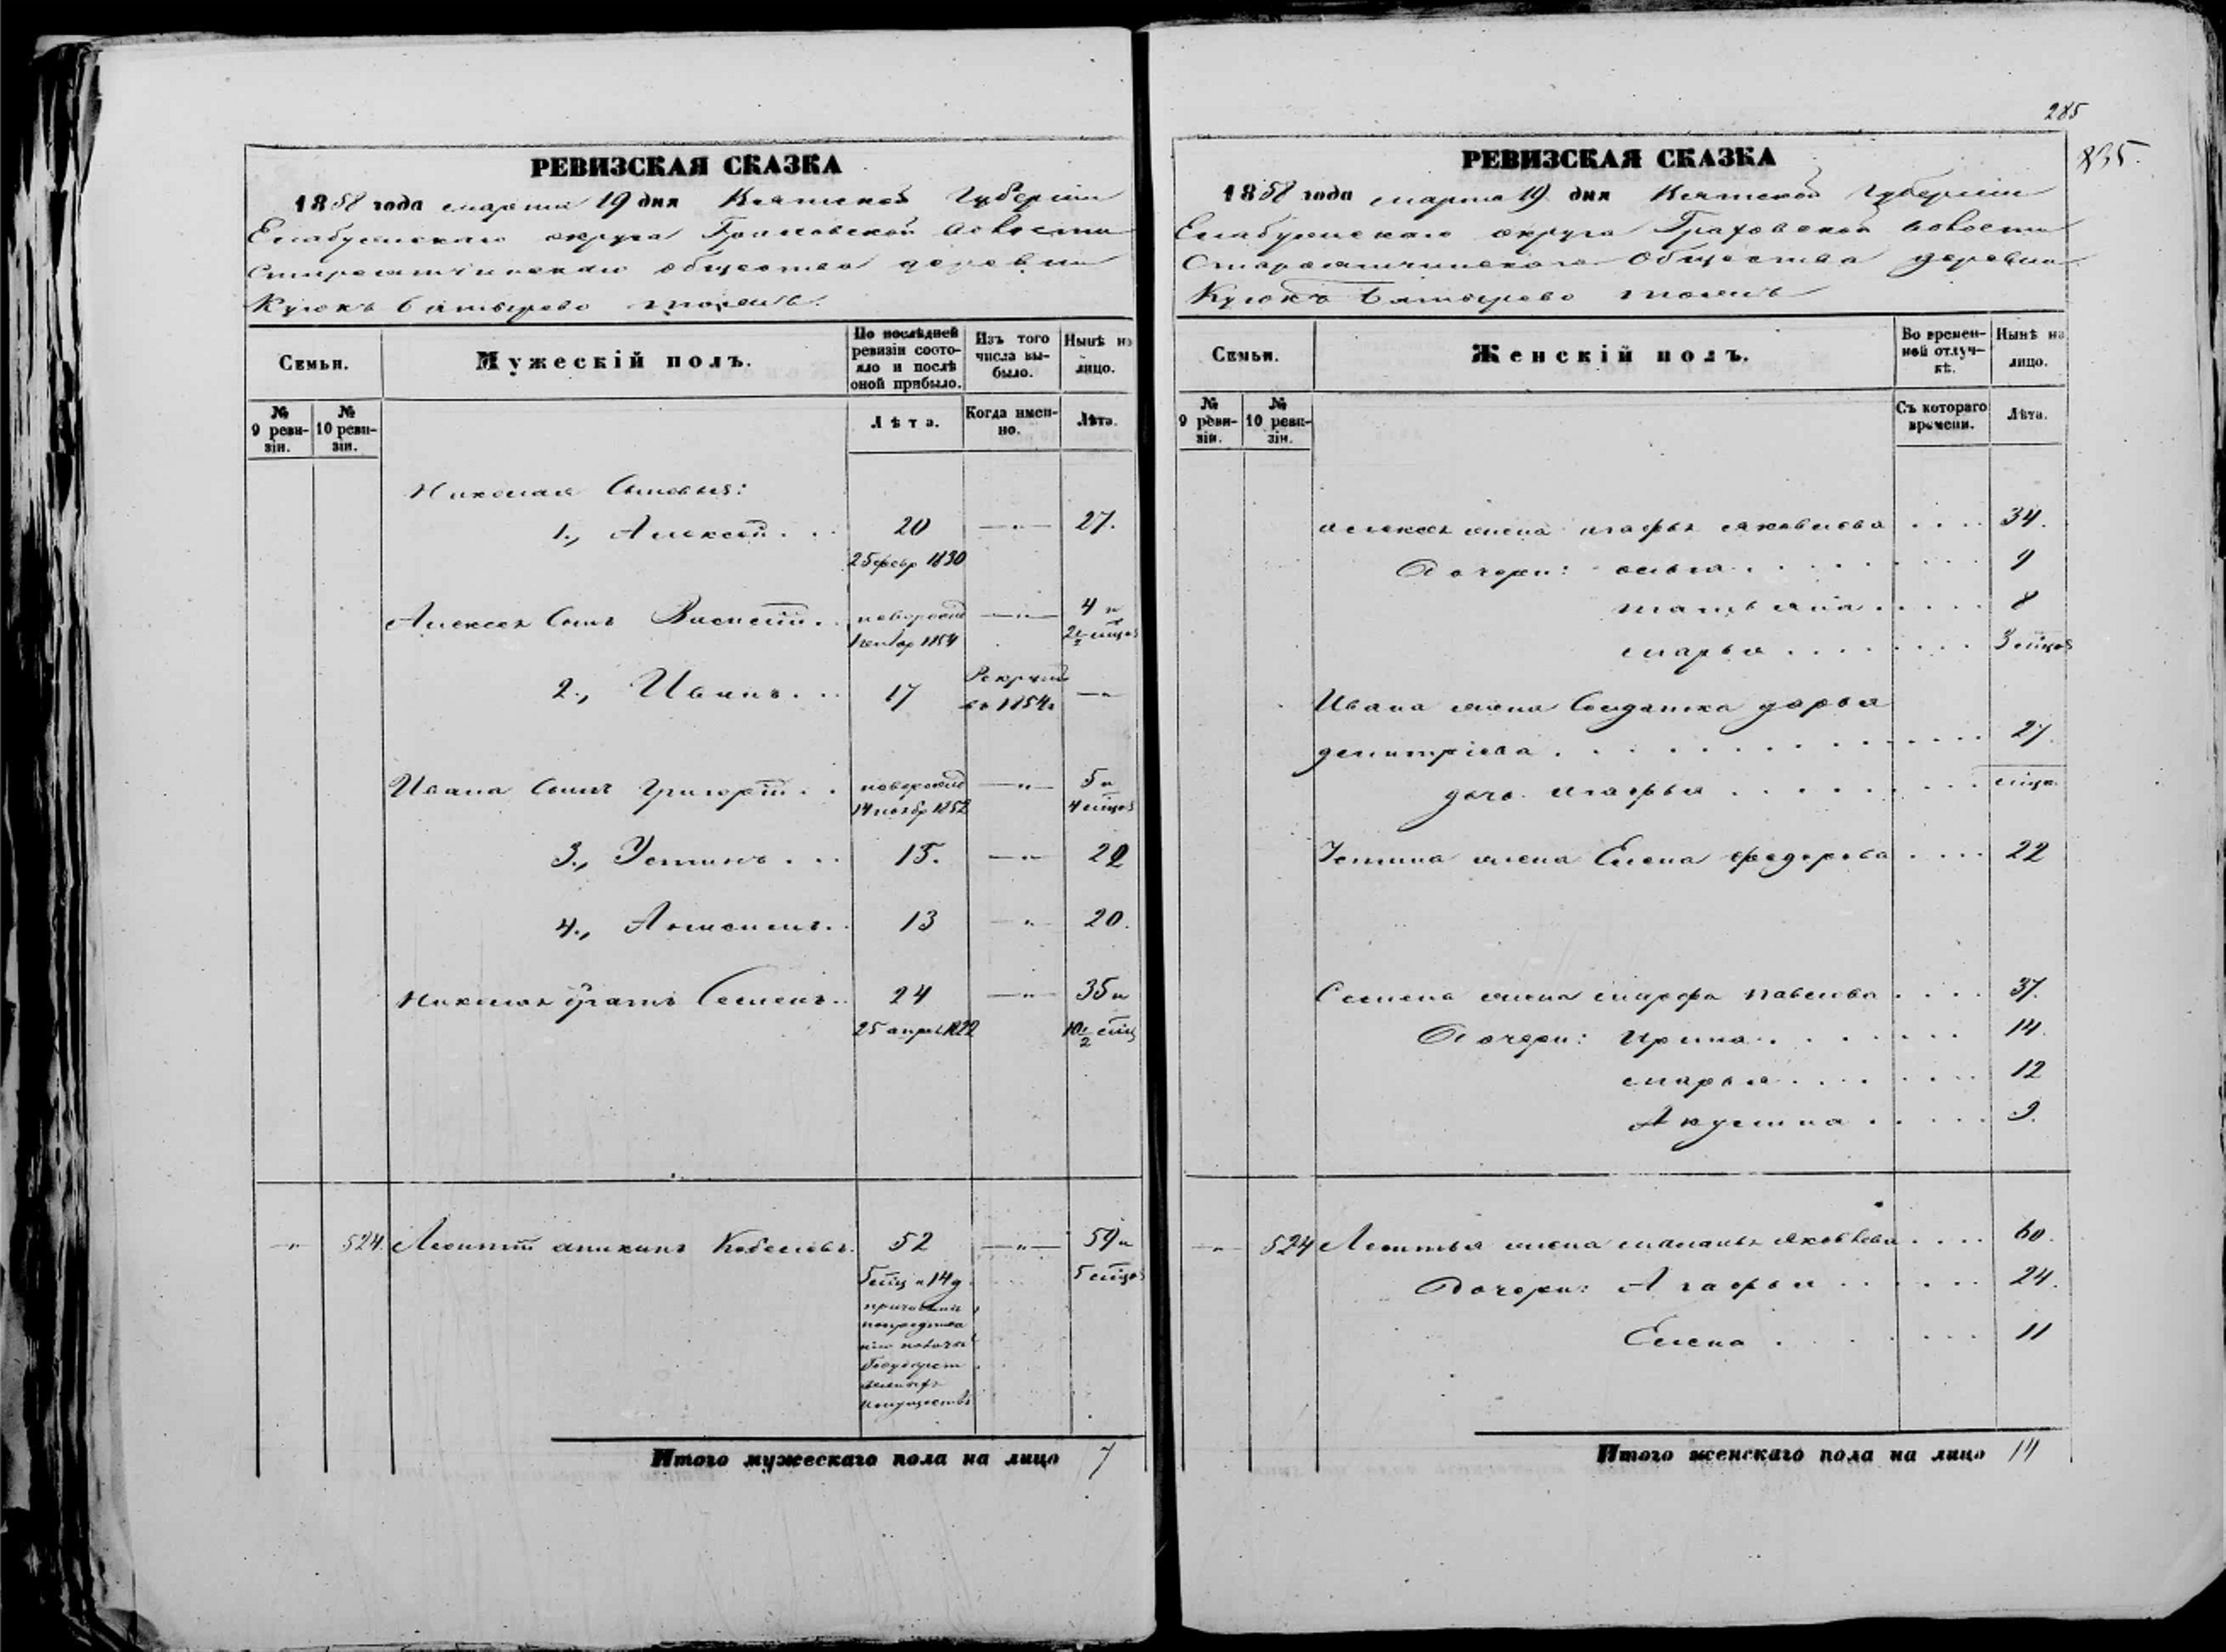 285
835.
РЕВИЗСКАЯ СКАЗКА
1858 года марта 19 дня Вятской Губерніи
Елабужскаго округа Граховской волости
общества деревни
РЕВИЗСКАЯ СКАЗКА
1858 года марта 19 дня Вятской Губерніи
Елабужскаго округа Граховской волости
Общества деревни
Семьи.
Мужескій полъ.
По послѣдней ревизіи состояло и послѣ оной прибыло.
Изъ того числа выбыло.
Нынѣ на лицо.
№ 9 ревизіи.
№ 10 ревизіи.
Лѣта.
Когда именно.
Лѣта.
Николая Сыновья:
1., Алексей . . 20 —„— 27.
25 февр 1830
Алексея Сынъ . новорожд —„— 4 и
1854 2½ мцов
2., Иванъ . . . 17 Рекрут —„
въ 1854г
Ивана Сынъ Григорій . . новорожд —„— 5 и
14 ноябр 1852 4 мцов
3., Устинъ . . . 15. —„— 22
4., . . 13 —„— 20.
Николая братъ Семенъ . . 24 —„— 35 и
25 апрел 1822 10½ мцъ
—„— 524. Леонтій аникинъ 52 —„— 59 и
5 мцъ и 14 д 5 мцов
причисленъ
государст
имуществъ
Итого мужескаго пола на лицо 7
Семьи.
Женскій полъ.
Во временной отлучкѣ.
Нынѣ на лицо.
№ 9 ревизіи.
№ 10 ревизіи.
Съ котораго времени.
Лѣта.
алексея жена агафья яковлева . . . . 34.
Дочери: . . . . . . . . 9
татьяна . . . . . 8
марья . . . . . . . . 3 мцов
Ивана жена Солдатка дарья
демитріева . . . . . . . . . . . . 27.
дочь агафья . . . . . . . . . мцъ
Устина жена Елена федорова . . . . 22
Семена жена марфа павлова . . . . 37.
Дочери: Ирина . . . . . . . 14.
марья . . . . . . . 12
Акулина . . . . . 9.
—„— 524 Леонтья жена маланья яковлева . . . . 60.
Дочери: Агафья . . . . . . 24.
Елена . . . . . . . 11
Итого женскаго пола на лицо 14